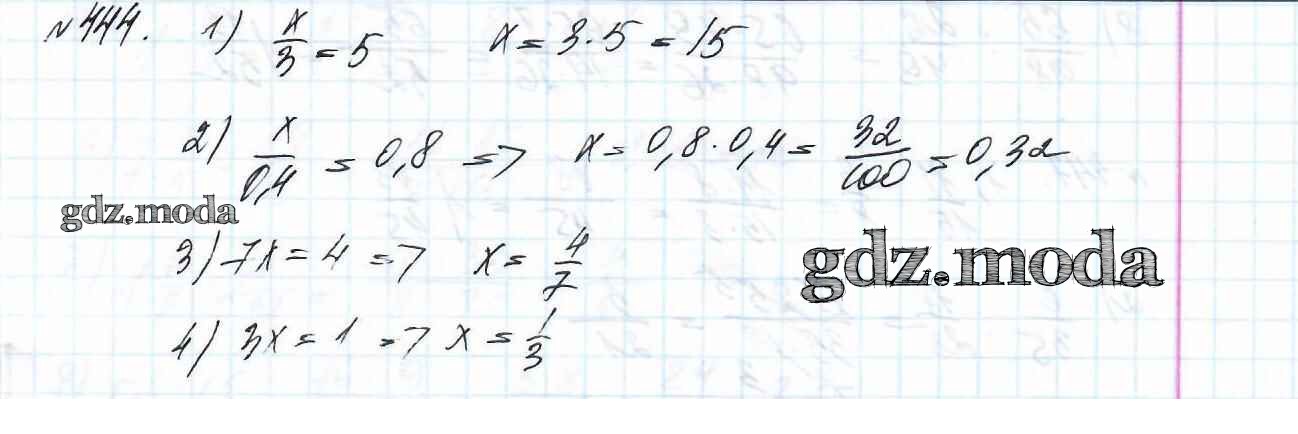 №444. 1) x/3 = 5 x = 3·5 = 15
2) x/0,4 = 0,8 => x = 0,8·0,4 = 32/100 = 0,32
gdz.moda
3) 7x = 4 => x = 4/7
gdz.moda
4) 3x = 1 => x = 1/3